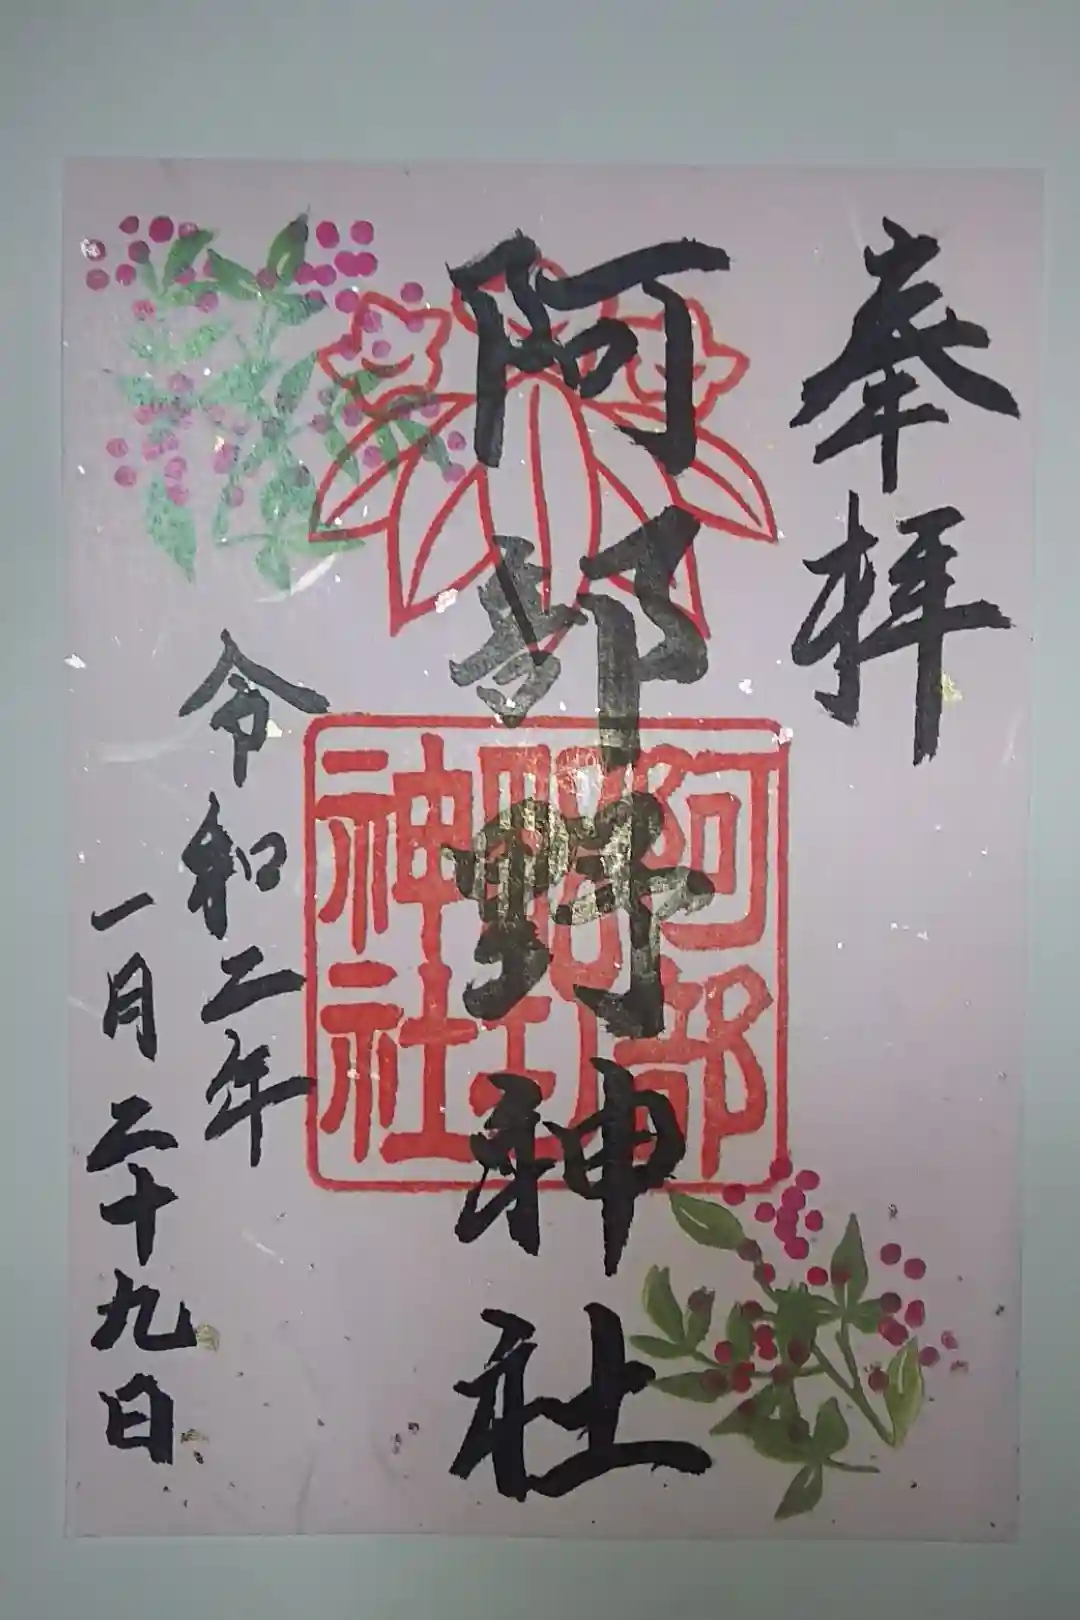 奉拝
阿部野神社
阿部野神社
令和二年
一月二十九日